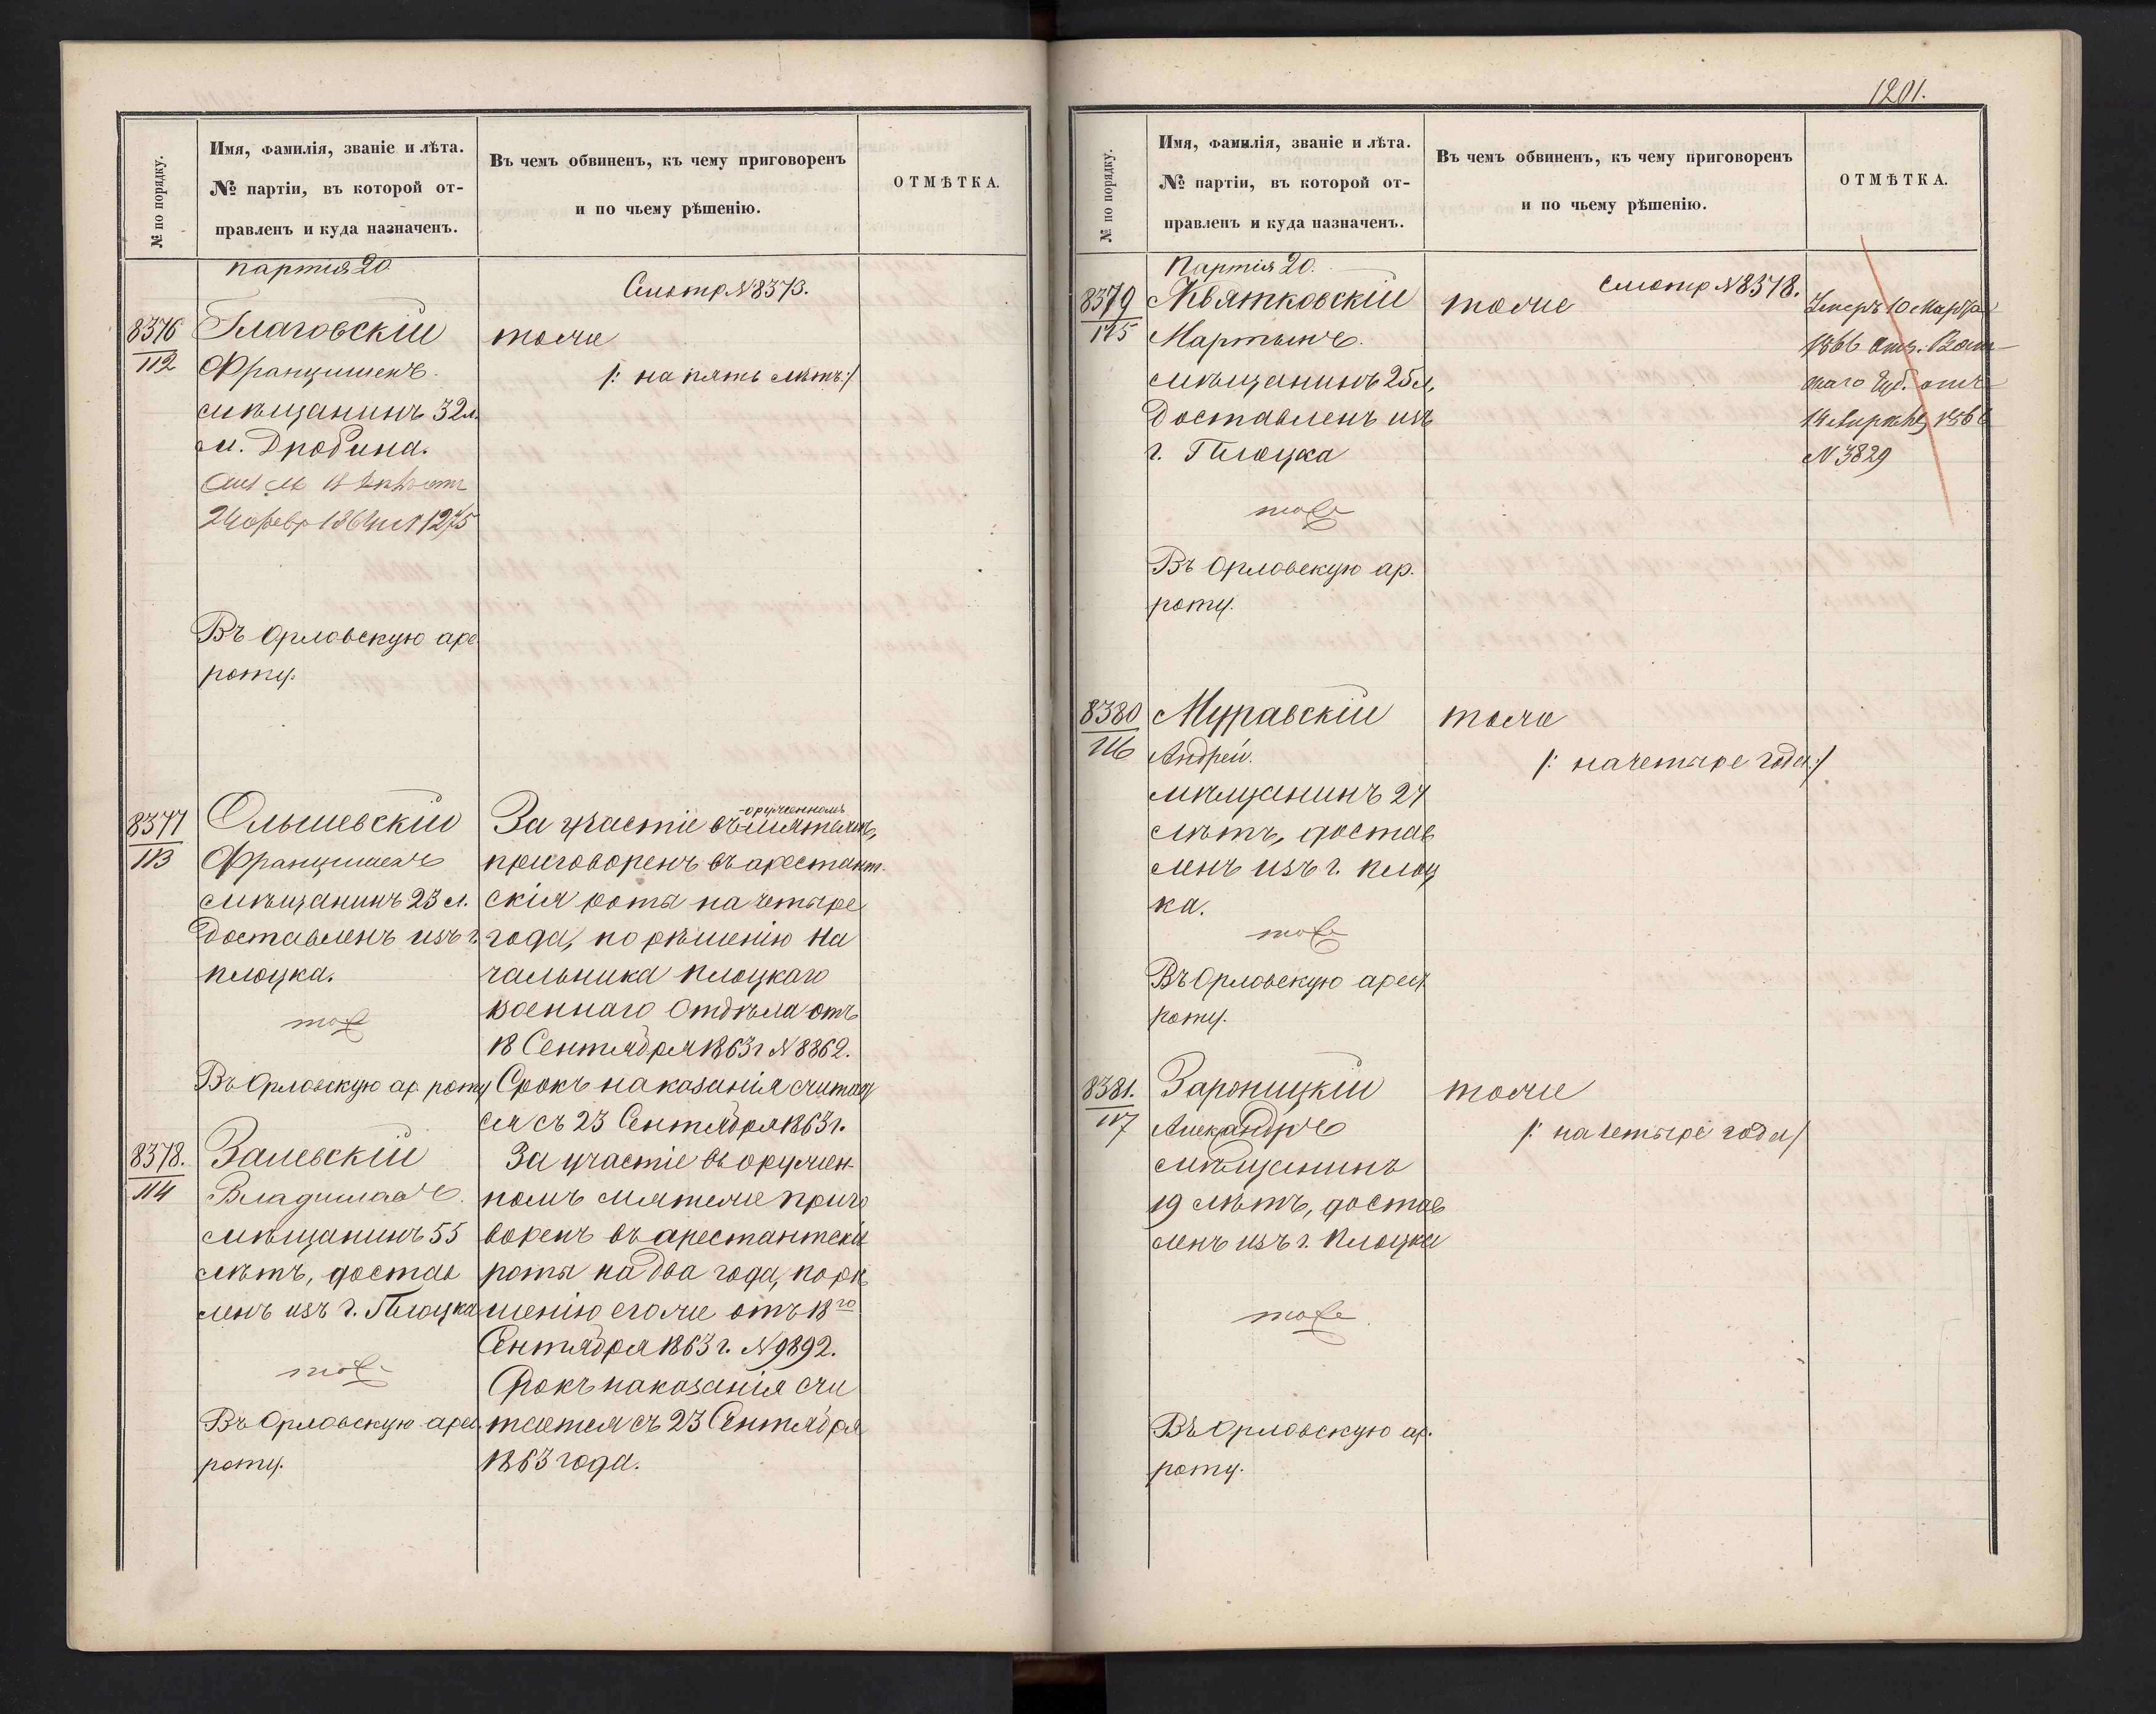 № по порядку.
Имя, Фамилія, званіе и лѣта.
№ партіи, въ которой от-
правленъ и куда назначенъ.
Въ чемъ обвиненъ, къ чему приговоренъ
и по чьему рѣшенію.
ОТМѢТКА.
партія 20
Смотр N 8373.
8376
112
Глаговскій
Францишекъ.
мѣщанинъ 32 л.
м. Дробина.
24 февр
Въ Орловскую аре.
роту.
тоже
/: на пять лѣтъ :/
8377
113
Ольшевскій
Францишекъ
мѣщанинъ 23 л.
доставленъ изъ г.
Плоцка.
тоже
Въ Орловскую ар. роту
За участіе въ -оруженномъ мятежѣ,
приговоренъ въ арестант-
скія роты на четыре
года, по рѣшенію На
чальника Плоцкаго
Военнаго Отдѣла отъ
18 Сентября 1863 г N 8862.
Срокъ наказанія считает
ся съ 23 Сентября 1863 г.
8378.
114
Залевскій
Владиславъ.
мѣщанинъ 55
лѣтъ, достав
ленъ изъ г. Плоцка
тоже
Въ Орловскую арес.
роту.
За участіе въ оружен-
номъ мятеже приго
воренъ въ арестантскія
роты на два года, по рѣ
шенію егоже отъ 18го
Сентября 1863 г. N 9892.
Срокъ наказанія счи
тается съ 23 Сентября
1863 года.
1201.
№ по порядку.
Имя, Фамилія, званіе и лѣта.
№ партіи, въ которой от-
правленъ и куда назначенъ.
Въ чемъ обвиненъ, къ чему приговоренъ
и по чьему рѣшенію.
ОТМѢТКА.
Партія 20.
смотр N 8378.
8379
115
Квятковскій
Мартынъ.
мѣщанинъ 25 л,
доставленъ изъ
г. Плоцка
тоже
Въ Орловскую ар.
роту.
тоже
Умеръ 10 Марта
1866
Губ. отъ
14 Апрѣля 1866
N 3829
8380
116
Муравскій
Андрей.
мѣщанинъ 27
лѣтъ, достав
ленъ изъ г. Плоц
ка.
тоже
Въ Орловскую арест
роту.
тоже
/: на четыре года :/
8381.
117
Зароницкій
Александръ
мѣщанинъ
19 лѣтъ, достав
ленъ изъ г. Плоцка
тоже
Въ Орловскую ар.
роту.
тоже
/: на четыре года /